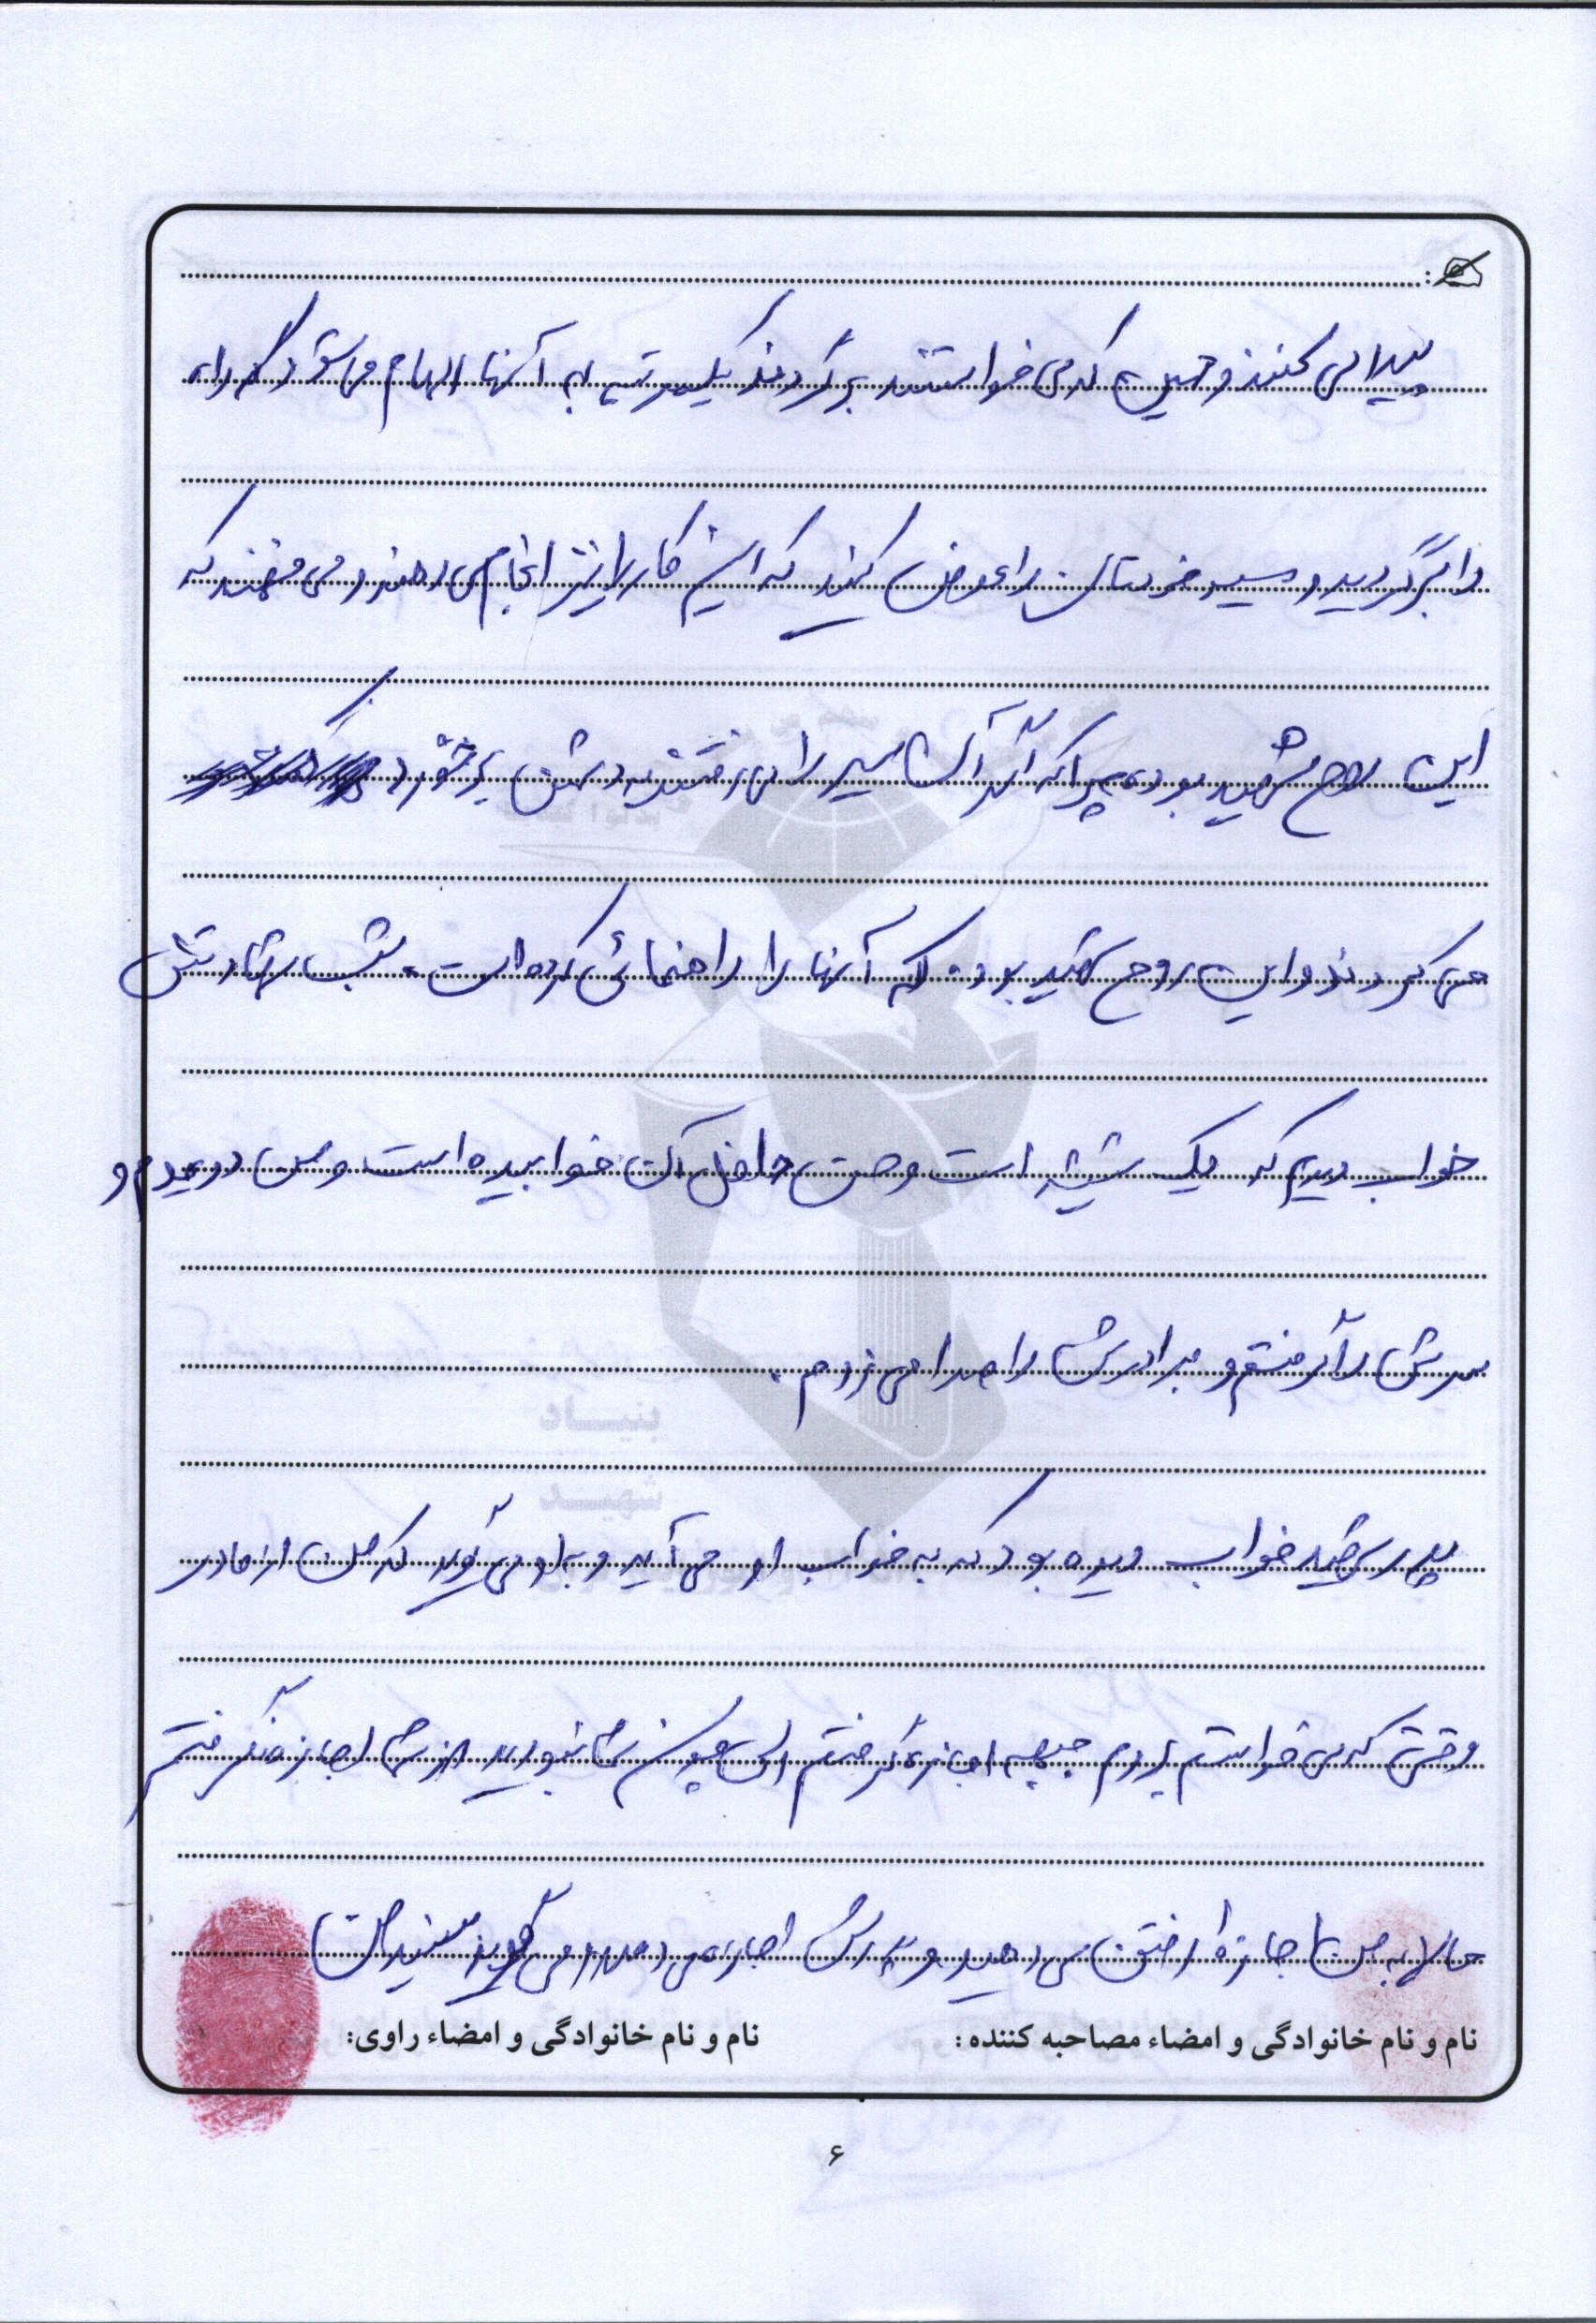 پیدا می کنند و حسین که می خواستند برگردند یکمرتبه به آنها الهام می شود که راه
را برگردید و مسیر خودتان را عوض کنید که این کار را نیز انجام می دهند و می فهمند که
این روح شهید بوده چرا که اگر آن مسیر را می رفتند به دشمن برخورد
می کردند و این روح شهید بوده که آنها را راهنمائی کرده است. شب شهادتش
خواب دیدم که یک شیشه است و حسن داخل آن خوابیده است و من دویدم و
سرش را گرفتم و برادرش را صدا می زدم.
پدر شهید خواب دیده بود که به خواب او می آید و به او می گوید که من از مادر
وقتی که می خواستم بروم جبهه اجازه گرفتم ولی چون شما نبودید از شما اجازه نگرفتم
حالا به من اجازه رفتن می دهید و پدرش اجازه می دهد و می گوید
نام و نام خانوادگی و امضاء مصاحبه کننده:
نام و نام خانوادگی و امضاء راوی:
۶